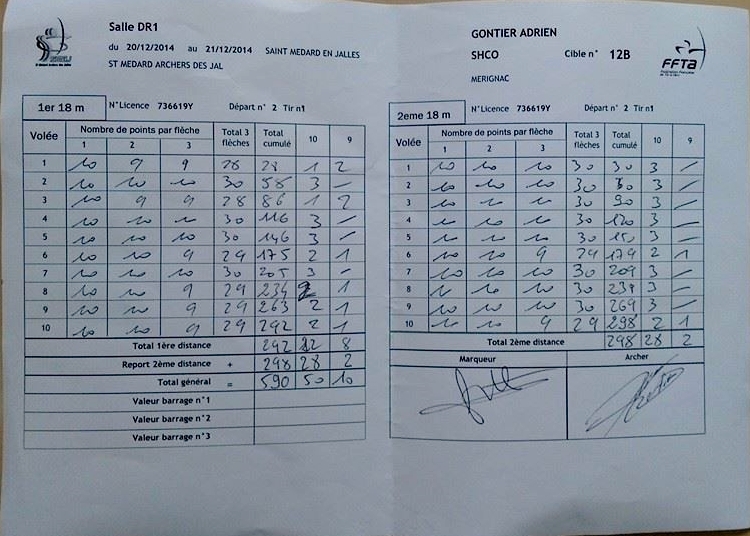 Salle DR1
du 20/12/2014 au 21/12/2014 SAINT MEDARD EN JALLES
ST MEDARD ARCHERS DES JAL
1er 18 m N°Licence 736619Y Départ n° 2 Tir n1
Volée Nombre de points par flèche Total 3 flèches Total cumulé 10 9
1 2 3
1 10 9 9 28 28 1 2
2 10 10 10 30 58 3 —
3 10 9 9 28 86 1 2
4 10 10 10 30 116 3 —
5 10 10 10 30 146 3 —
6 10 10 9 29 175 2 1
7 10 10 10 30 205 3 —
8 10 10 9 29 234 2 1
9 10 10 9 29 263 2 1
10 10 10 9 29 292 2 1
Total 1ère distance 292 22 8
Report 2ème distance + 298 28 2
Total général = 590 50 10
Valeur barrage n°1
Valeur barrage n°2
Valeur barrage n°3
GONTIER ADRIEN
SHCO Cible n° 12B
MERIGNAC
FFTA
2eme 18 m N°Licence 736619Y Départ n° 2 Tir n1
Volée Nombre de points par flèche Total 3 flèches Total cumulé 10 9
1 2 3
1 10 10 10 30 30 3 —
2 10 10 10 30 60 3 —
3 10 10 10 30 90 3 —
4 10 10 10 30 120 3 —
5 10 10 10 30 150 3 —
6 10 10 9 29 179 2 1
7 10 10 10 30 209 3 —
8 10 10 10 30 239 3 —
9 10 10 10 30 269 3 —
10 10 10 9 29 298 2 1
Total 2ème distance 298 28 2
Marqueur Archer